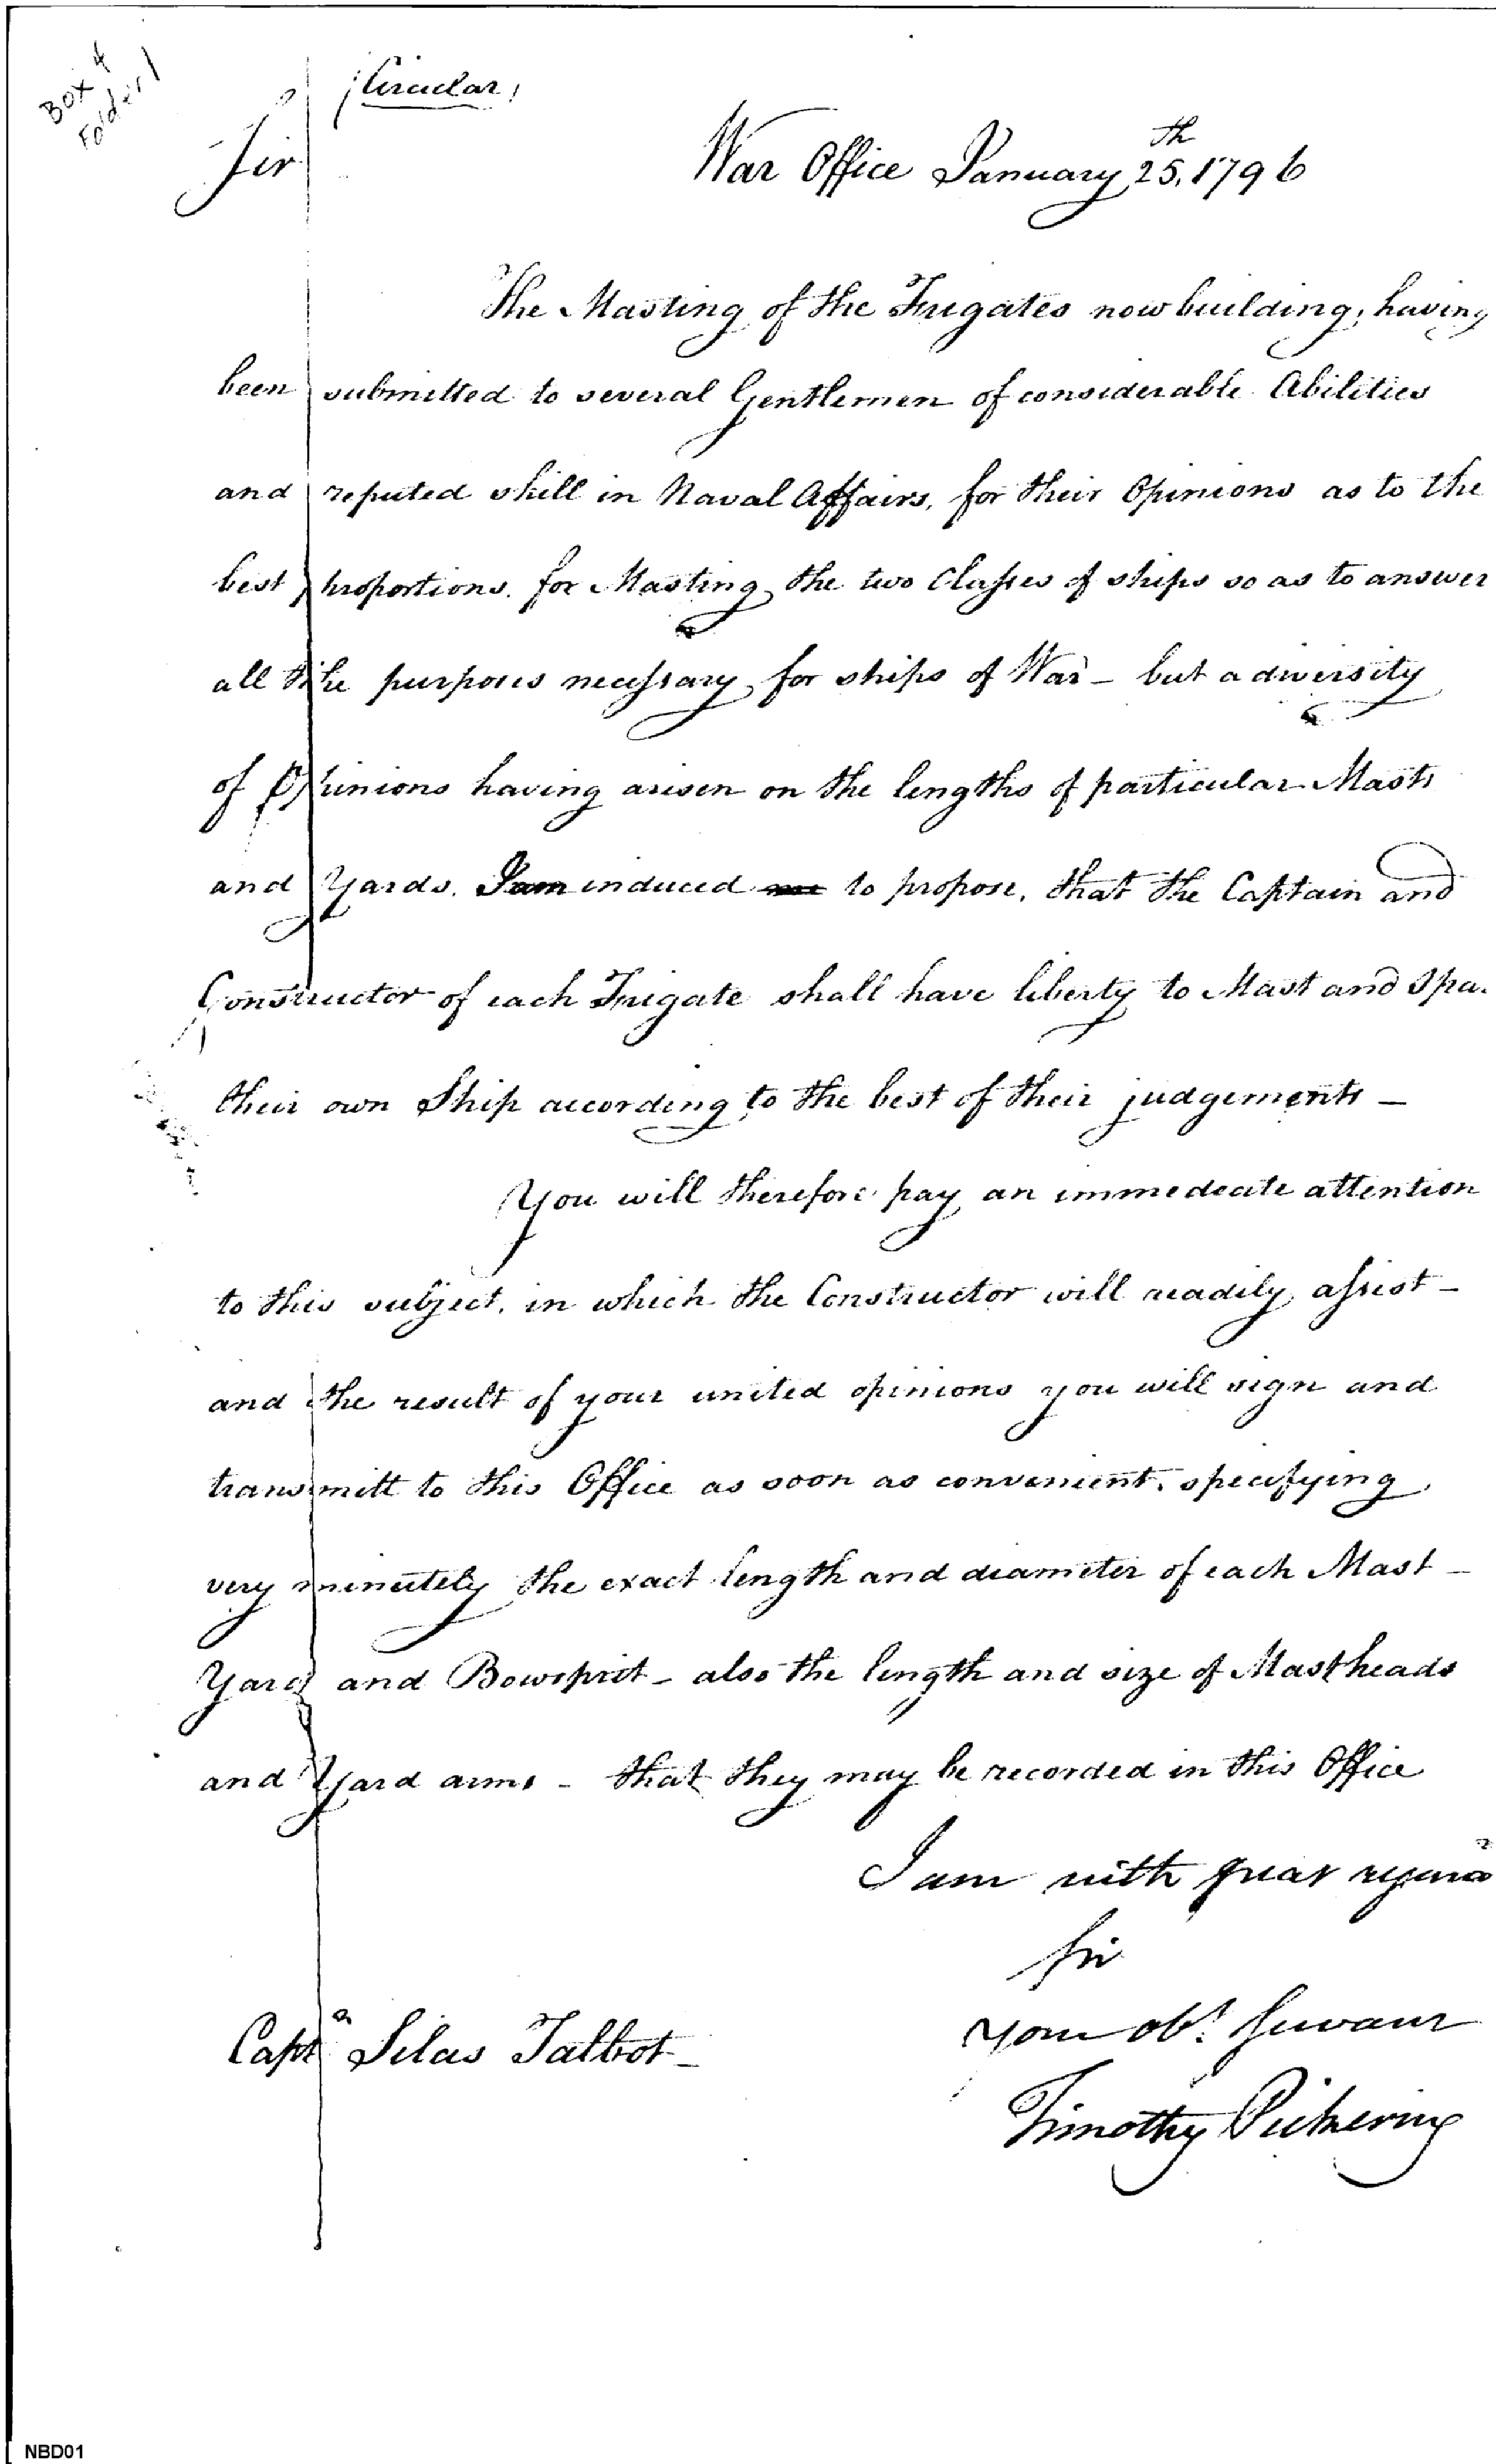 Box 4
Folder 1
(Circular)
Sir
War Office January 25th, 1796
The Masting of the Frigates now building, having
been submitted to several Gentlemen of considerable Abilities
and reputed skill in Naval Affairs, for their Opinions as to the
best proportions, for Masting the two Classes of ships so as to answer
all the purposes necessary for ships of War - but a diversity
of Opinions having arisen on the lengths of particular Masts
and Yards, I am induced to propose, that the Captain and
Constructor of each Frigate shall have liberty to Mast and Spar
their own Ship according to the best of their judgements -
You will therefore pay an immediate attention
to this subject, in which the Constructor will readily assist -
and the result of your united opinions you will sign and
transmitt to this Office as soon as convenient, specifying
very minutely the exact length and diameter of each Mast -
Yard and Bowsprit - also the length and size of Mastheads
and Yard arms - that they may be recorded in this Office
I am with great regard
Sir
your obt. Servant
Timothy Pickering
Captn Silas Talbot -
NBD01